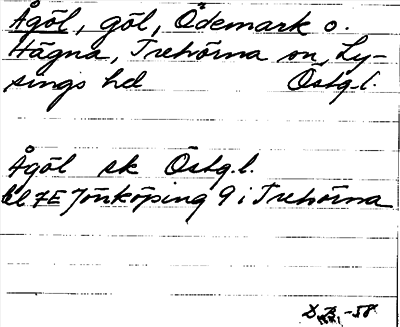 Ågöl, göl, Ödemark o.
Hägna, Trehörna sn, Ly-
sings hd Östg.l.
Ågöl sk Östg.l.
bl 7E Jönköping 9 i Trehörna
-58